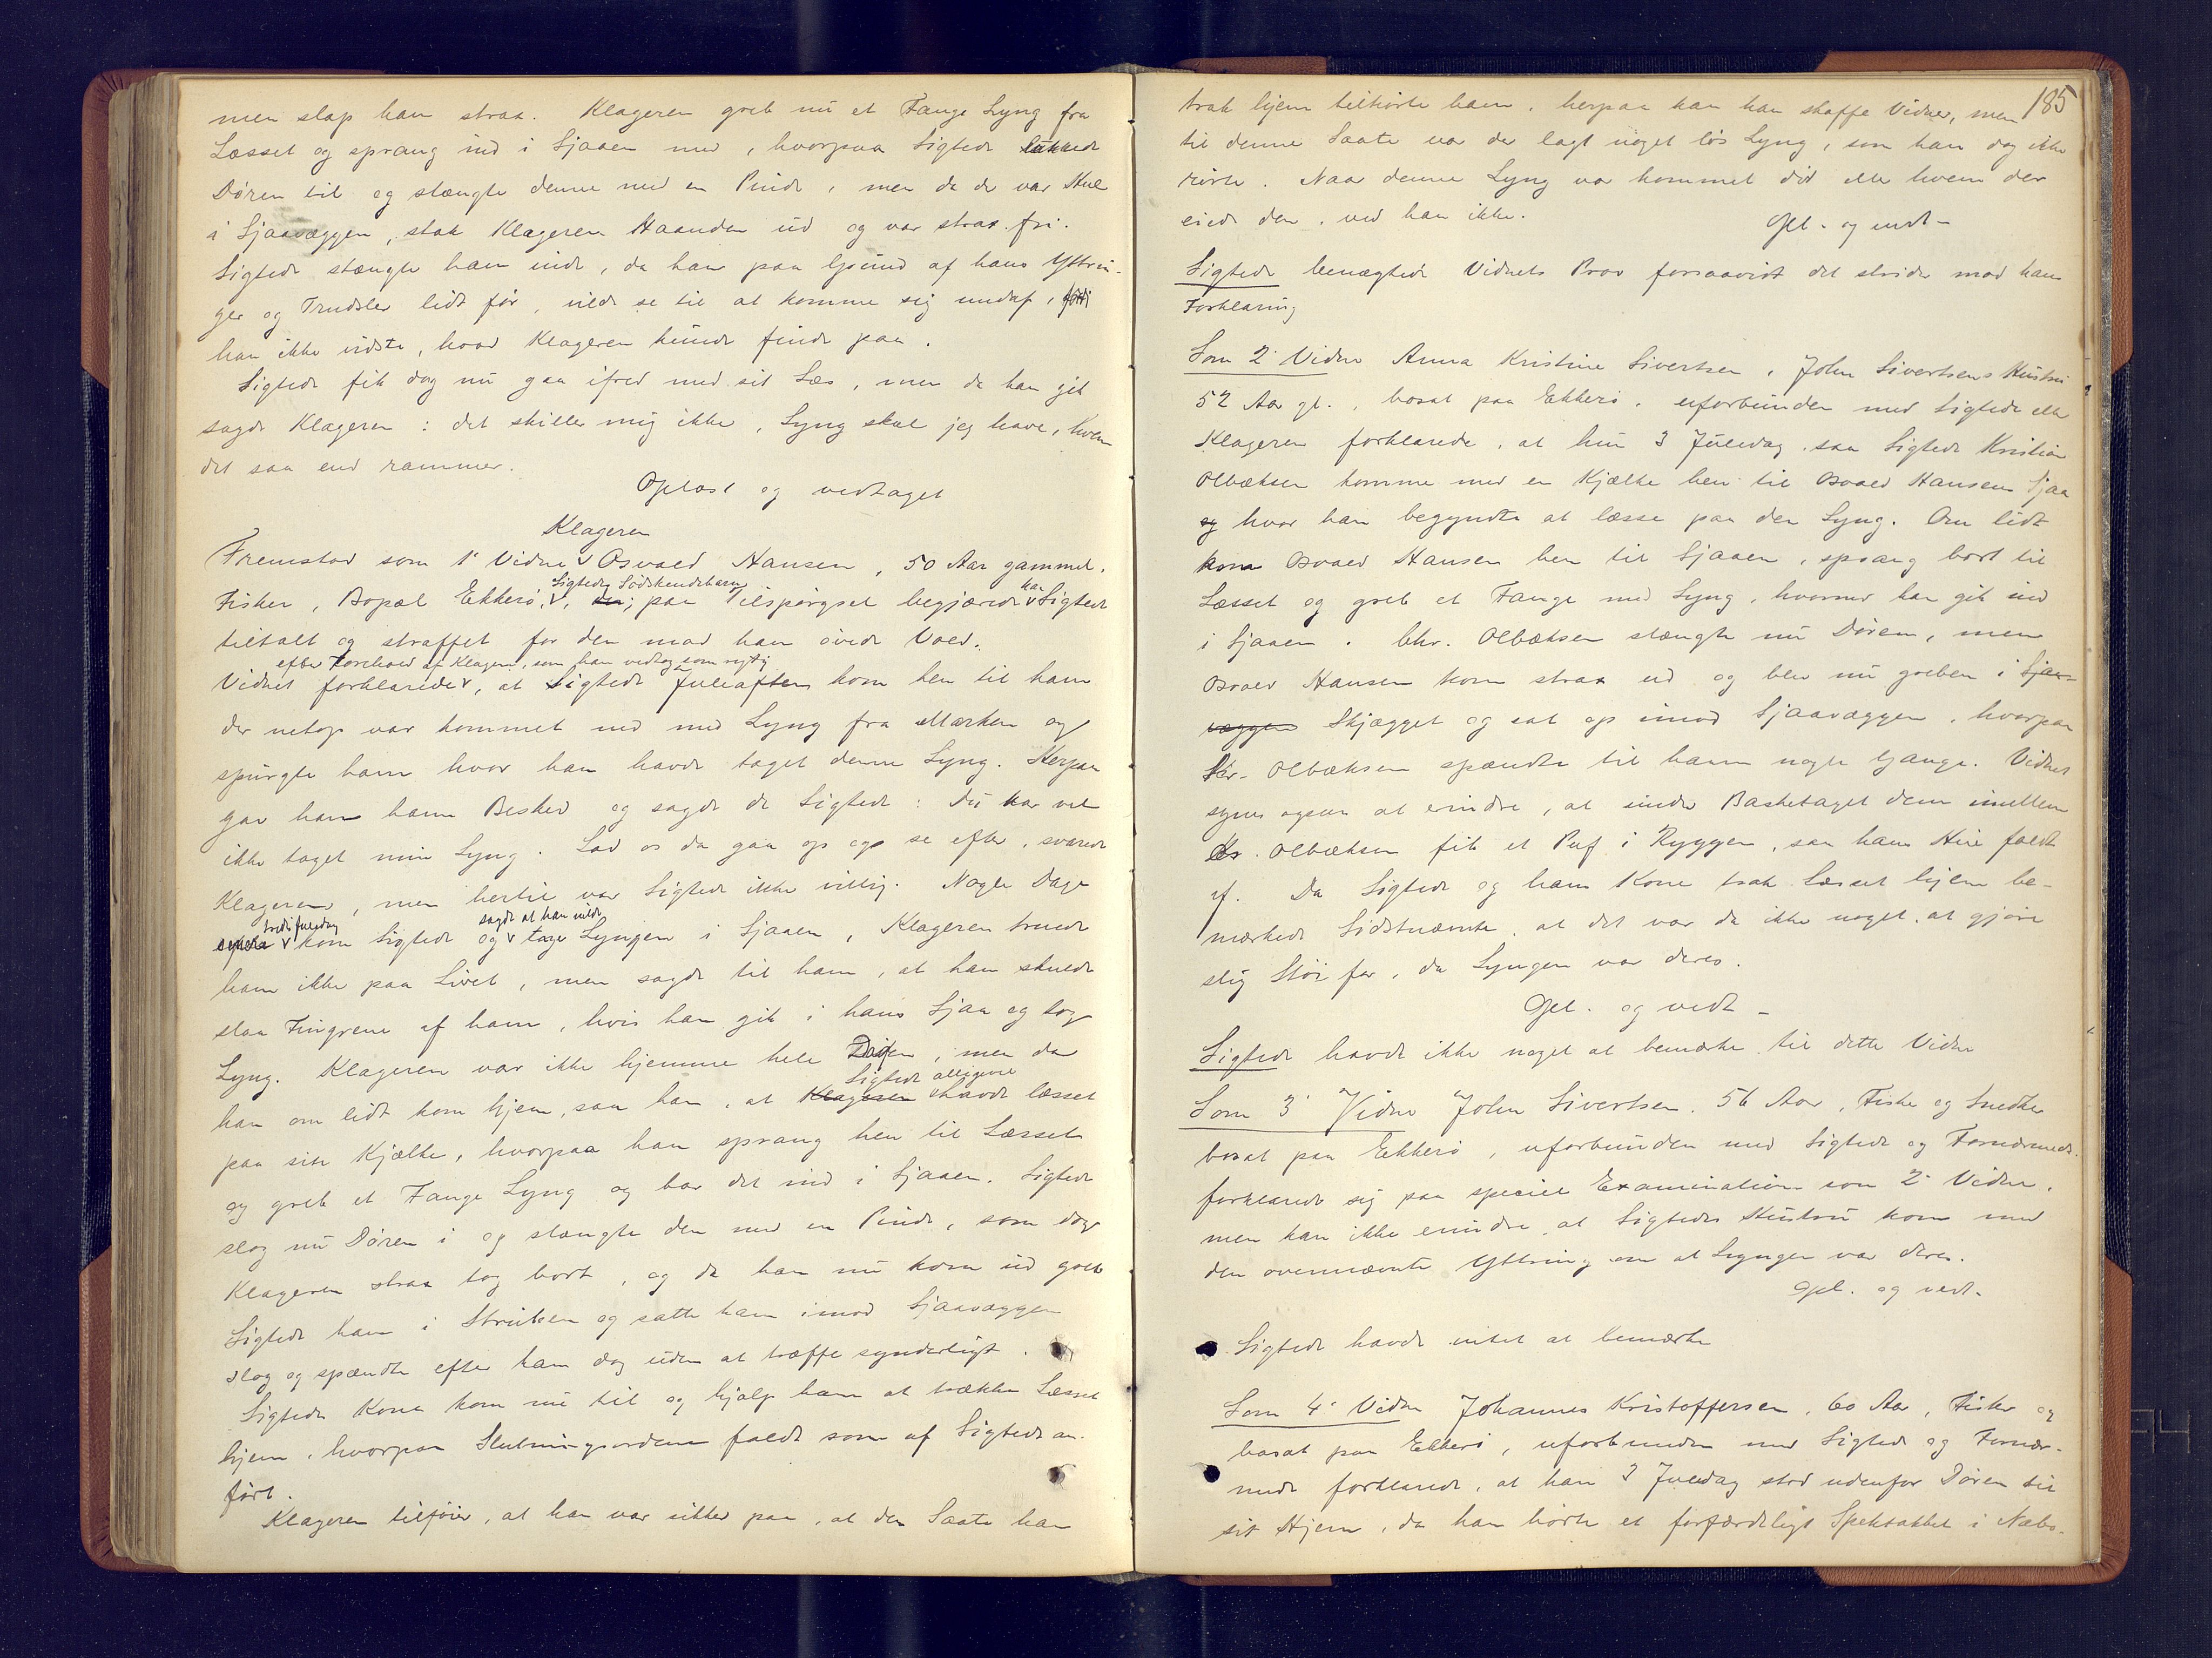 men slap ham strax. Klageren greb nu et Fange Lyng fra
Læsset og sprang ind i Sjaaen med, hvorpaa Sigtede lukkede
Døren til og stængte denne med en Pinde, men da der var Hul
i Sjaavæggen, stak Klageren Haanden ud og var strax fri.
Sigtede stængte ham inde, da han paa Grund af hans Yttrin-
ger og Trudsler lidt før, vilde se til at komme sig undaf, fordi
han ikke vidste, hvad Klageren kunde finde paa.
Sigtede fik dog nu gaa ifred med sit Læs, men da han gik
sagde Klageren: det skiller mig ikke, Lyng skal jeg have, hvem
det saa end rammer.
Oplæst og vedtaget
Klageren
Fremstod som 1' Vidne Osvald Hansen, 50 Aar gammel,
Sigtedes Sødskendebarn han
Fisker, Bopæl Ekkerø, paa Tilspørgsel begjærede Sigtede
tiltalt og straffet for den mod ham øvede Vold.
efter Forehold af Klagen, som han vedtog som rigtig
Vidnet forklarede, at Sigtede Juleaften kom hen til ham
der netop var kommet ned med Lyng fra Marken og
spurgte ham hvor han havde taget denne Lyng. Herpaa
gav han ham Besked og sagde da Sigtede: Du har vel
ikke taget min Lyng. Lad os da gaa op og se efter, svarede
Klageren, men hertil var Sigtede ikke villig. Nogle Dage
tredie Juledag sagde at han vilde
senere kom Sigtede og tage Lyngen i Sjaaen, Klageren truede
ham ikke paa Livet, men sagde til ham, at han skulde
slaa Fingrene af ham, hvis han gik i hans Sjaa og tog
Lyng. Klageren var ikke hjemme hele Dagen, men da
Sigtede alligevel
han om lidt kom hjem, saa han, at Klageren havde læsset
paa sin Kjælke, hvorpaa han sprang hen til Læsset
og greb et Fange Lyng og bar det ind i Sjaaen. Sigtede
slog nu Døren i og stængte den med en Pinde, som dog
Klageren strax tog bort, og da han nu kom ud greb
Sigtede ham i Struben og satte ham imod Sjaavæggen
slog og spændte efter ham dog uden at træffe synderligt.
Sigtedes Kone kom nu til og hjalp ham at trække Læsset
hjem, hvorpaa Slutningsordene faldt som af Sigtede an-
ført.
Klageren tilføier, at han var sikker paa, at den Saate han
185
trak hjem tilhørte ham, herpaa kan han skaffe Vidner, men
til denne Saate var der lagt noget løs Lyng, som han dog ikke
rørte. Naar denne Lyng var kommet did eller hvem der
eiede den, ved han ikke.
Opl. og vedt-
Sigtede benægtede Vidnets Prov forsaavidt det strider mod hans
Forklaring
Som 2' Vidne Anna Kristine Sivertsen, John Sivertsens Hustru
52 Aar gl., bosat paa Ekkerø, uforbunden med Sigtede eller
Klageren forklarede, at hun 3 Juledag saa Sigtede Kristian
Olbæksen komme med en Kjælke hen til Osvald Hansens Sjaa
og hvor han begyndte at læsse paa den Lyng. Om lidt
kom Osvald Hansen hen til Sjaaen, sprang bort til
Læsset og greb et Fange med Lyng, hvormed han gik ind
i Sjaaen. Chr. Olbæksen stængte nu Døren, men
Osvald Hansen kom strax ud og blev nu greben i Sjaa-
væggen Skjægget og sat op imod Sjaavæggen, hvorpaa
Kr. Olbæksen spændte til ham nogle Gange. Vidnet
synes ogsaa at erindre, at under Basketaget dem imellem
Kr. Olbæksen fik et Puf i Ryggen, saa hans Hue faldt
af. Da Sigtede og hans Kone trak Læsset hjem be-
mærkede Sidstnævnte, at det var da ikke noget at gjøre
slig Støi for, da Lyngen var deres.
Opl. og vedt -
Sigtede havde ikke noget at bemærke til dette Vidne
Som 3' Vidne John Sivertsen, 56 Aar, Fisker og Snedker
bosat paa Ekkerø, uforbunden med Sigtede og Fornærmede
forklarede sig paa speciel Examination som 2' Vidne,
men kan ikke erindre, at Sigtedes Hustru kom med
den ovennævnte Yttring om at Lyngen var deres.
Opl. og vedt.
Sigtede havde intet at bemærke
Som 4' Vidne Johannes Kristoffersen, 60 Aar, Fisker og
bosat paa Ekkerø, uforbunden med Sigtede og Fornær-
mede forklarede, at han 3 Juledag stod udenfor Døren til
sit Hjem, da han hørte et forfærdeligt Spektakkel i Nabo-